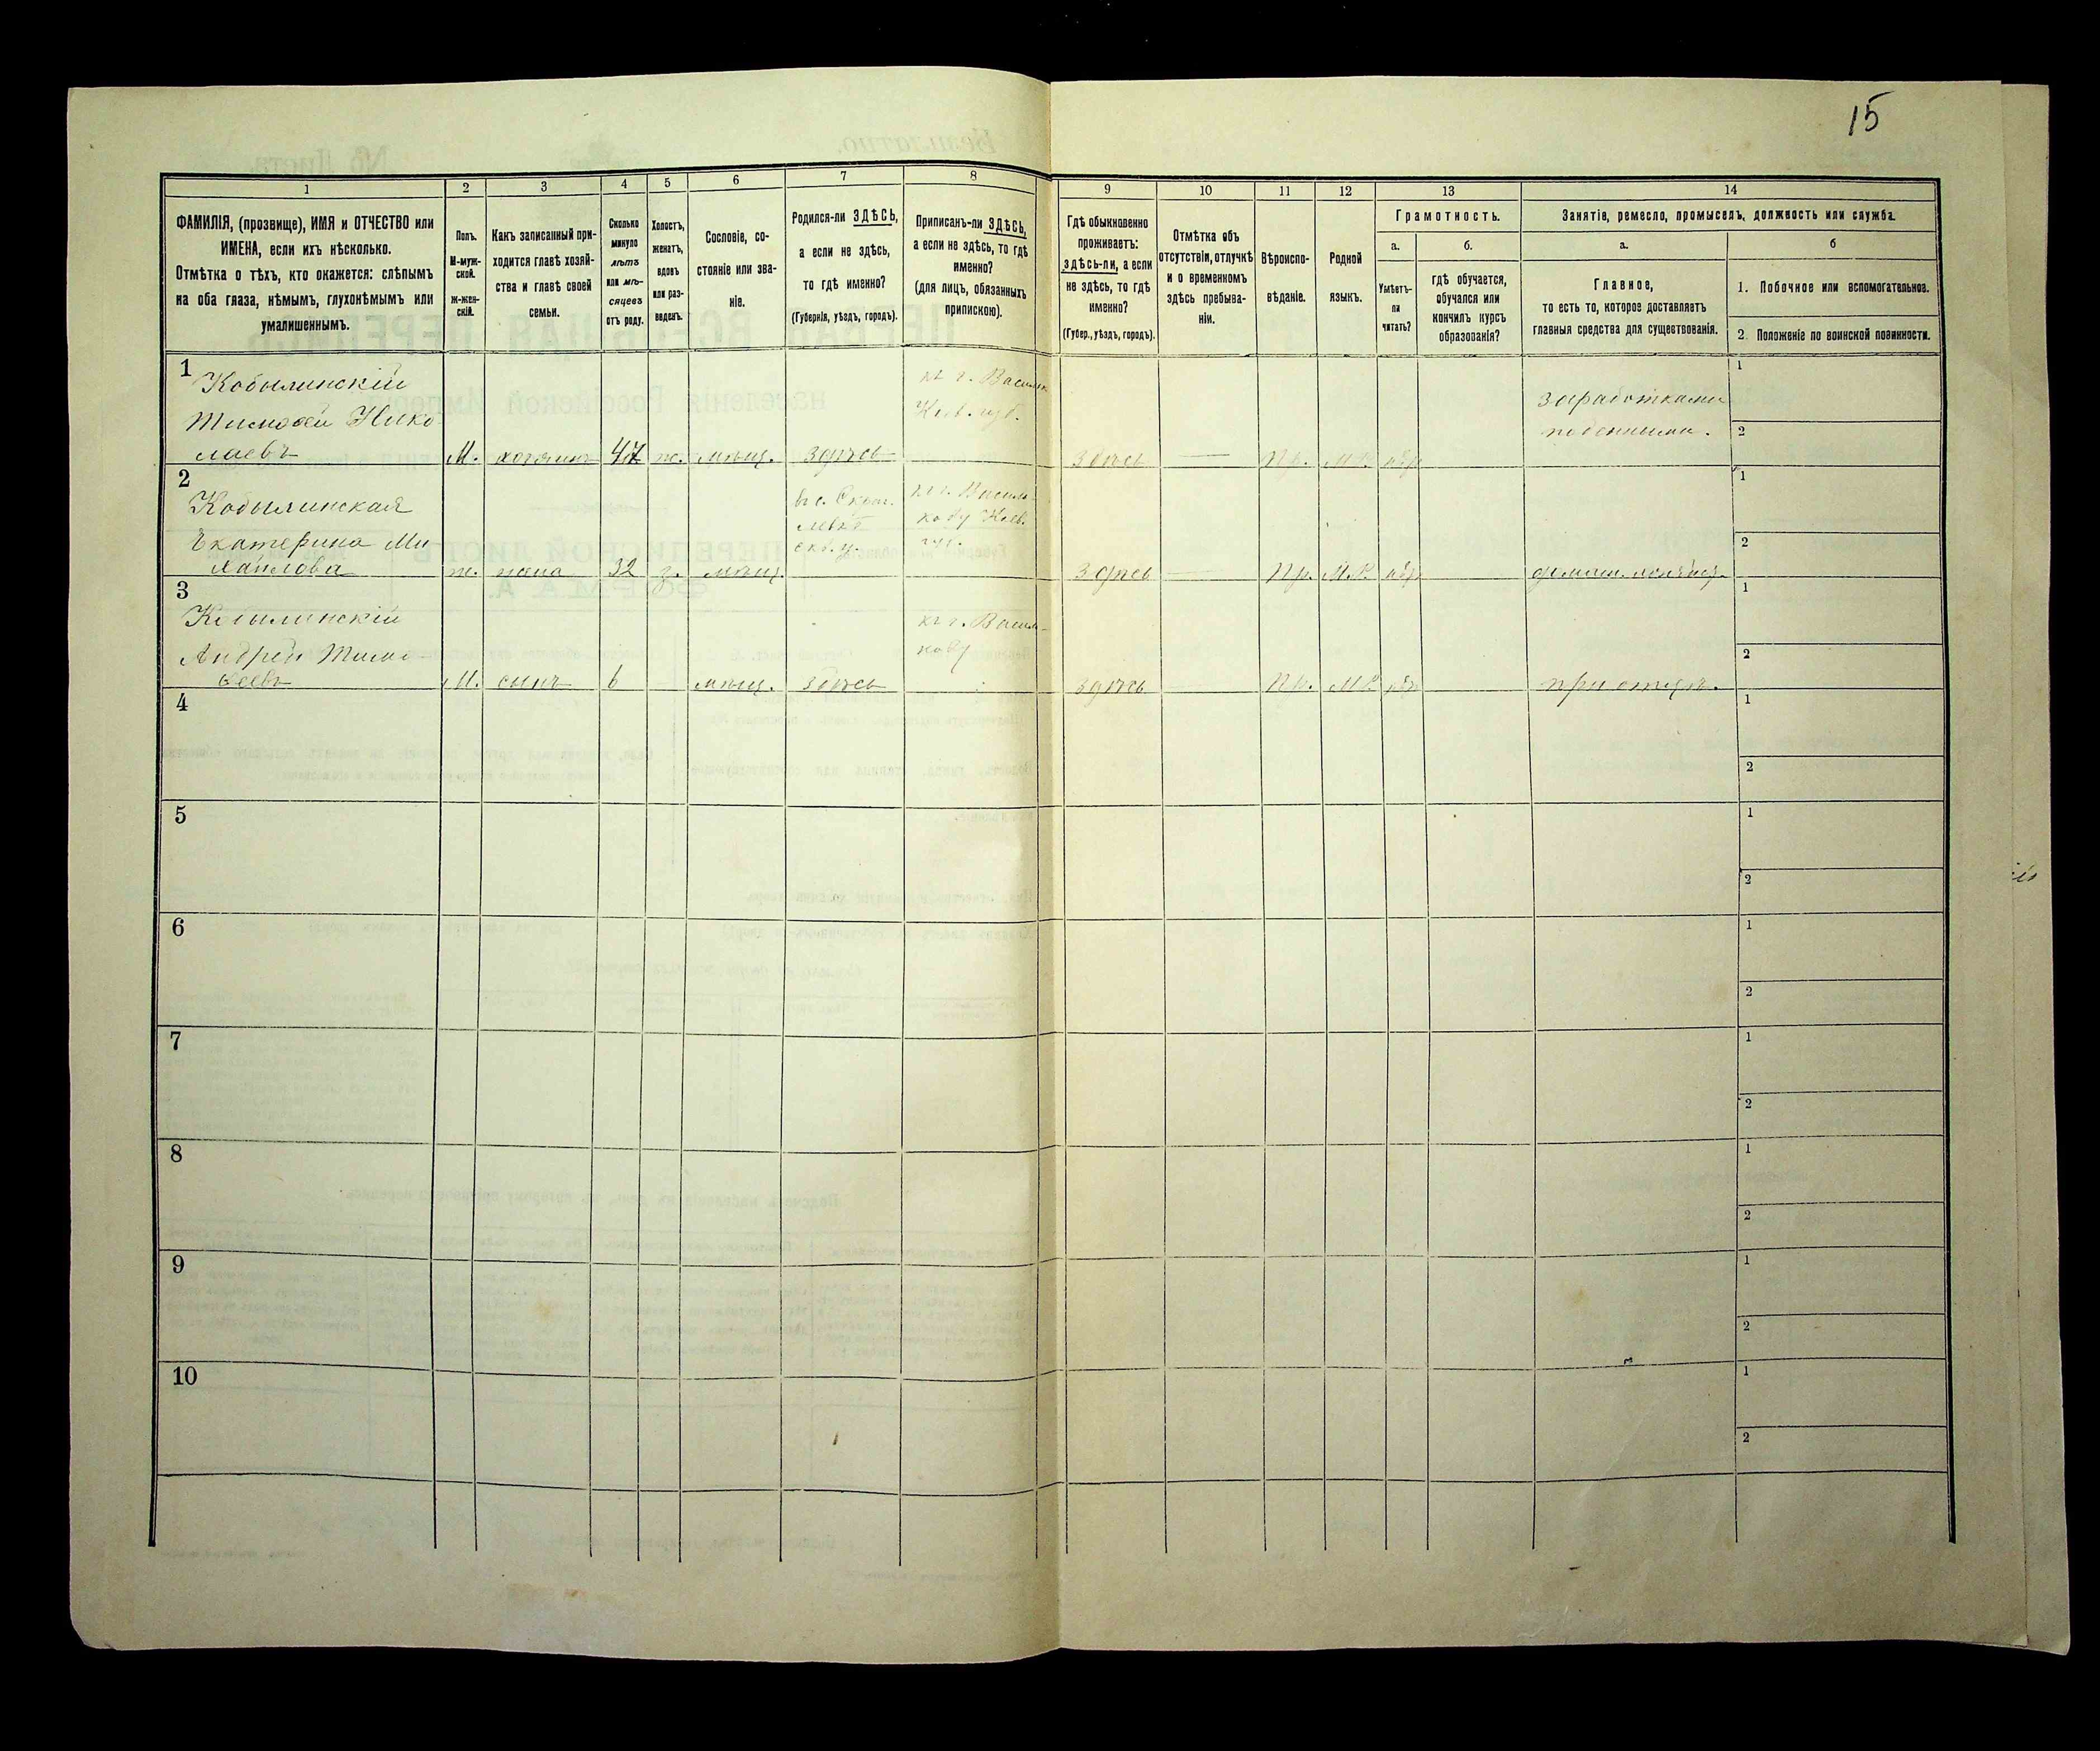 15
1
2
3
4
5
6
7
8
9
10
11
12
13
14
ФАМИЛІЯ, (прозвище), ИМЯ и ОТЧЕСТВО или
ИМЕНА, если ихъ нѣсколько.
Отмѣтка о тѣхъ, кто окажется: слѣпымъ
на оба глаза, нѣмымъ, глухонѣмымъ или
умалишеннымъ.
Полъ.
М-муж-
ской.
Ж-жен-
скій.
Какъ записанный при-
ходится главѣ хозяй-
ства и главѣ своей
семьи.
Сколько
минуло
лѣтъ
или мѣ-
сяцевъ
отъ роду.
Холостъ,
женатъ,
вдовъ
или раз-
веденъ.
Сословіе, со-
стояніе или зва-
ніе.
Родился-ли ЗДѢСЬ,
а если не здѣсь,
то гдѣ именно?
(Губернія, уѣздъ, городъ).
Приписанъ-ли ЗДѢСЬ,
а если не здѣсь, то гдѣ
именно?
(для лицъ, обязанныхъ
припискою).
Гдѣ обыкновенно
проживаетъ:
здѣсь-ли, а если
не здѣсь, то гдѣ
именно?
(Губер., уѣздъ, городъ).
Отмѣтка объ
отсутствіи, отлучкѣ
и о временномъ
здѣсь пребыва-
ніи.
Вѣроиспо-
вѣданіе.
Родной
языкъ.
Грамотность.
а.
Умѣетъ-
ли
читать?
б.
гдѣ обучается,
обучался или
кончилъ курсъ
образованія?
Занятіе, ремесло, промыселъ, должность или служба.
а.
Главное,
то есть то, которое доставляетъ
главныя средства для существованія.
б
1. Побочное или вспомогательное.
2. Положеніе по воинской повинности.
1
Кобылинскій
Тимофей Нико
лаевъ
М.
хозяинъ
47
ж.
мѣщ.
здѣсь
къ г. Васильк
Кіев. губ.
здѣсь
Пр.
М.Р.
заработками
поденными.
1
2
2
Кобылинская
Екатерина Ми
хаилова
ж.
жена
32
з.
мѣщ.
къ г. Василь
кову Кіев.
губ.
здѣсь
Пр.
М.Р.
1
2
3
Кобылинскій
Андрей Тимо
феевъ
М.
сынъ
6
мѣщ.
здѣсь
къ г. Василь
кову
здѣсь
Пр.
М.Р.
при отцѣ.
1
2
4
1
2
5
1
2
6
1
2
7
1
2
8
1
2
9
1
2
10
1
2